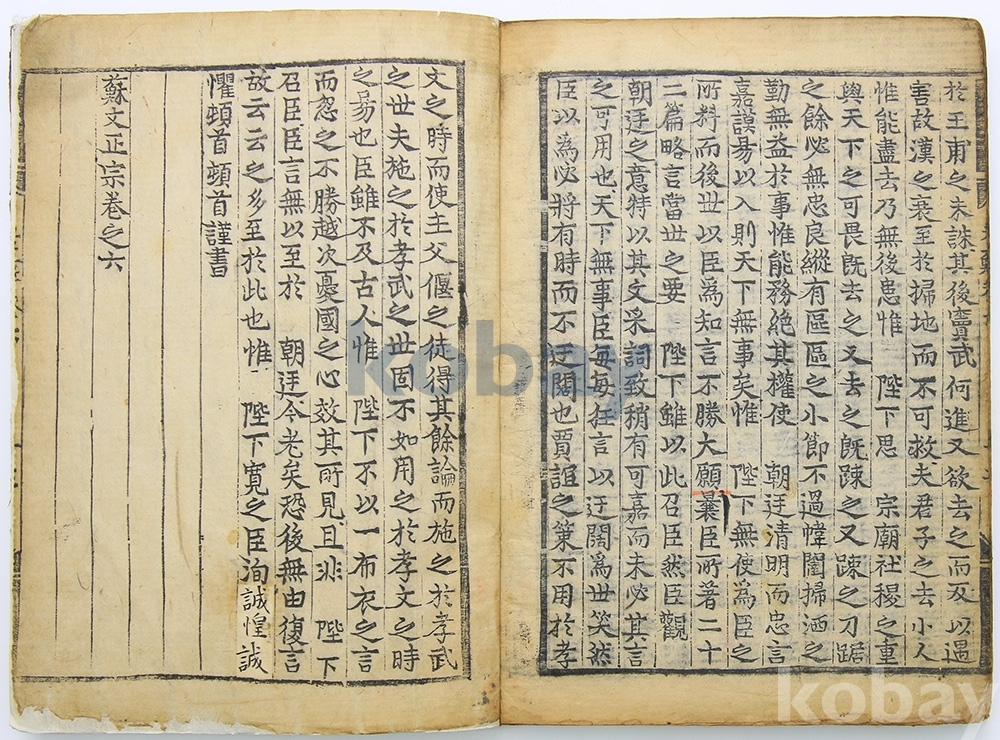 於王甫之未誅其後竇武何進又欲去之而反以遇
害故漢之衰至於掃地而不可救夫君子之去小人
惟能盡去乃無後患惟 陛下思 宗廟社稷之重
與天下之可畏旣去之又去之旣踈之又踈之刀鋸
之餘必無忠良縱有區區之小節不過幃闥掃洒之
勤無益於事惟能務絶其權使 朝廷清明而忠言
嘉謨昜以入則天下無事矣惟 陛下無使爲臣之
所料而後世以臣爲知言不勝大願曩臣所著二十
二篇略言當世之要 陛下雖以此召臣然臣觀
朝廷之意特以其文采詞致稍有可嘉而未必其言
之可用也天下無事臣每每狂言以迂闊爲世笑然
臣以爲必將有時而不迂闊也賈誼之策不用於孝
文之時而使主父偃之徒得其餘論而施之於孝武
之世夫施之於孝武之世固不如用之於孝文之時
之昜也臣雖不及古人惟 陛下不以一布衣之言
而忽之不勝越次憂國之心效其所見且非 陛下
召臣臣言無以至於 朝廷今老矣恐後無由復言
故云云之多至於此也惟 陛下寬之臣洵誠惶誠
懼頓首頓首謹書
蘇文正宗卷之六
kobay
kobay